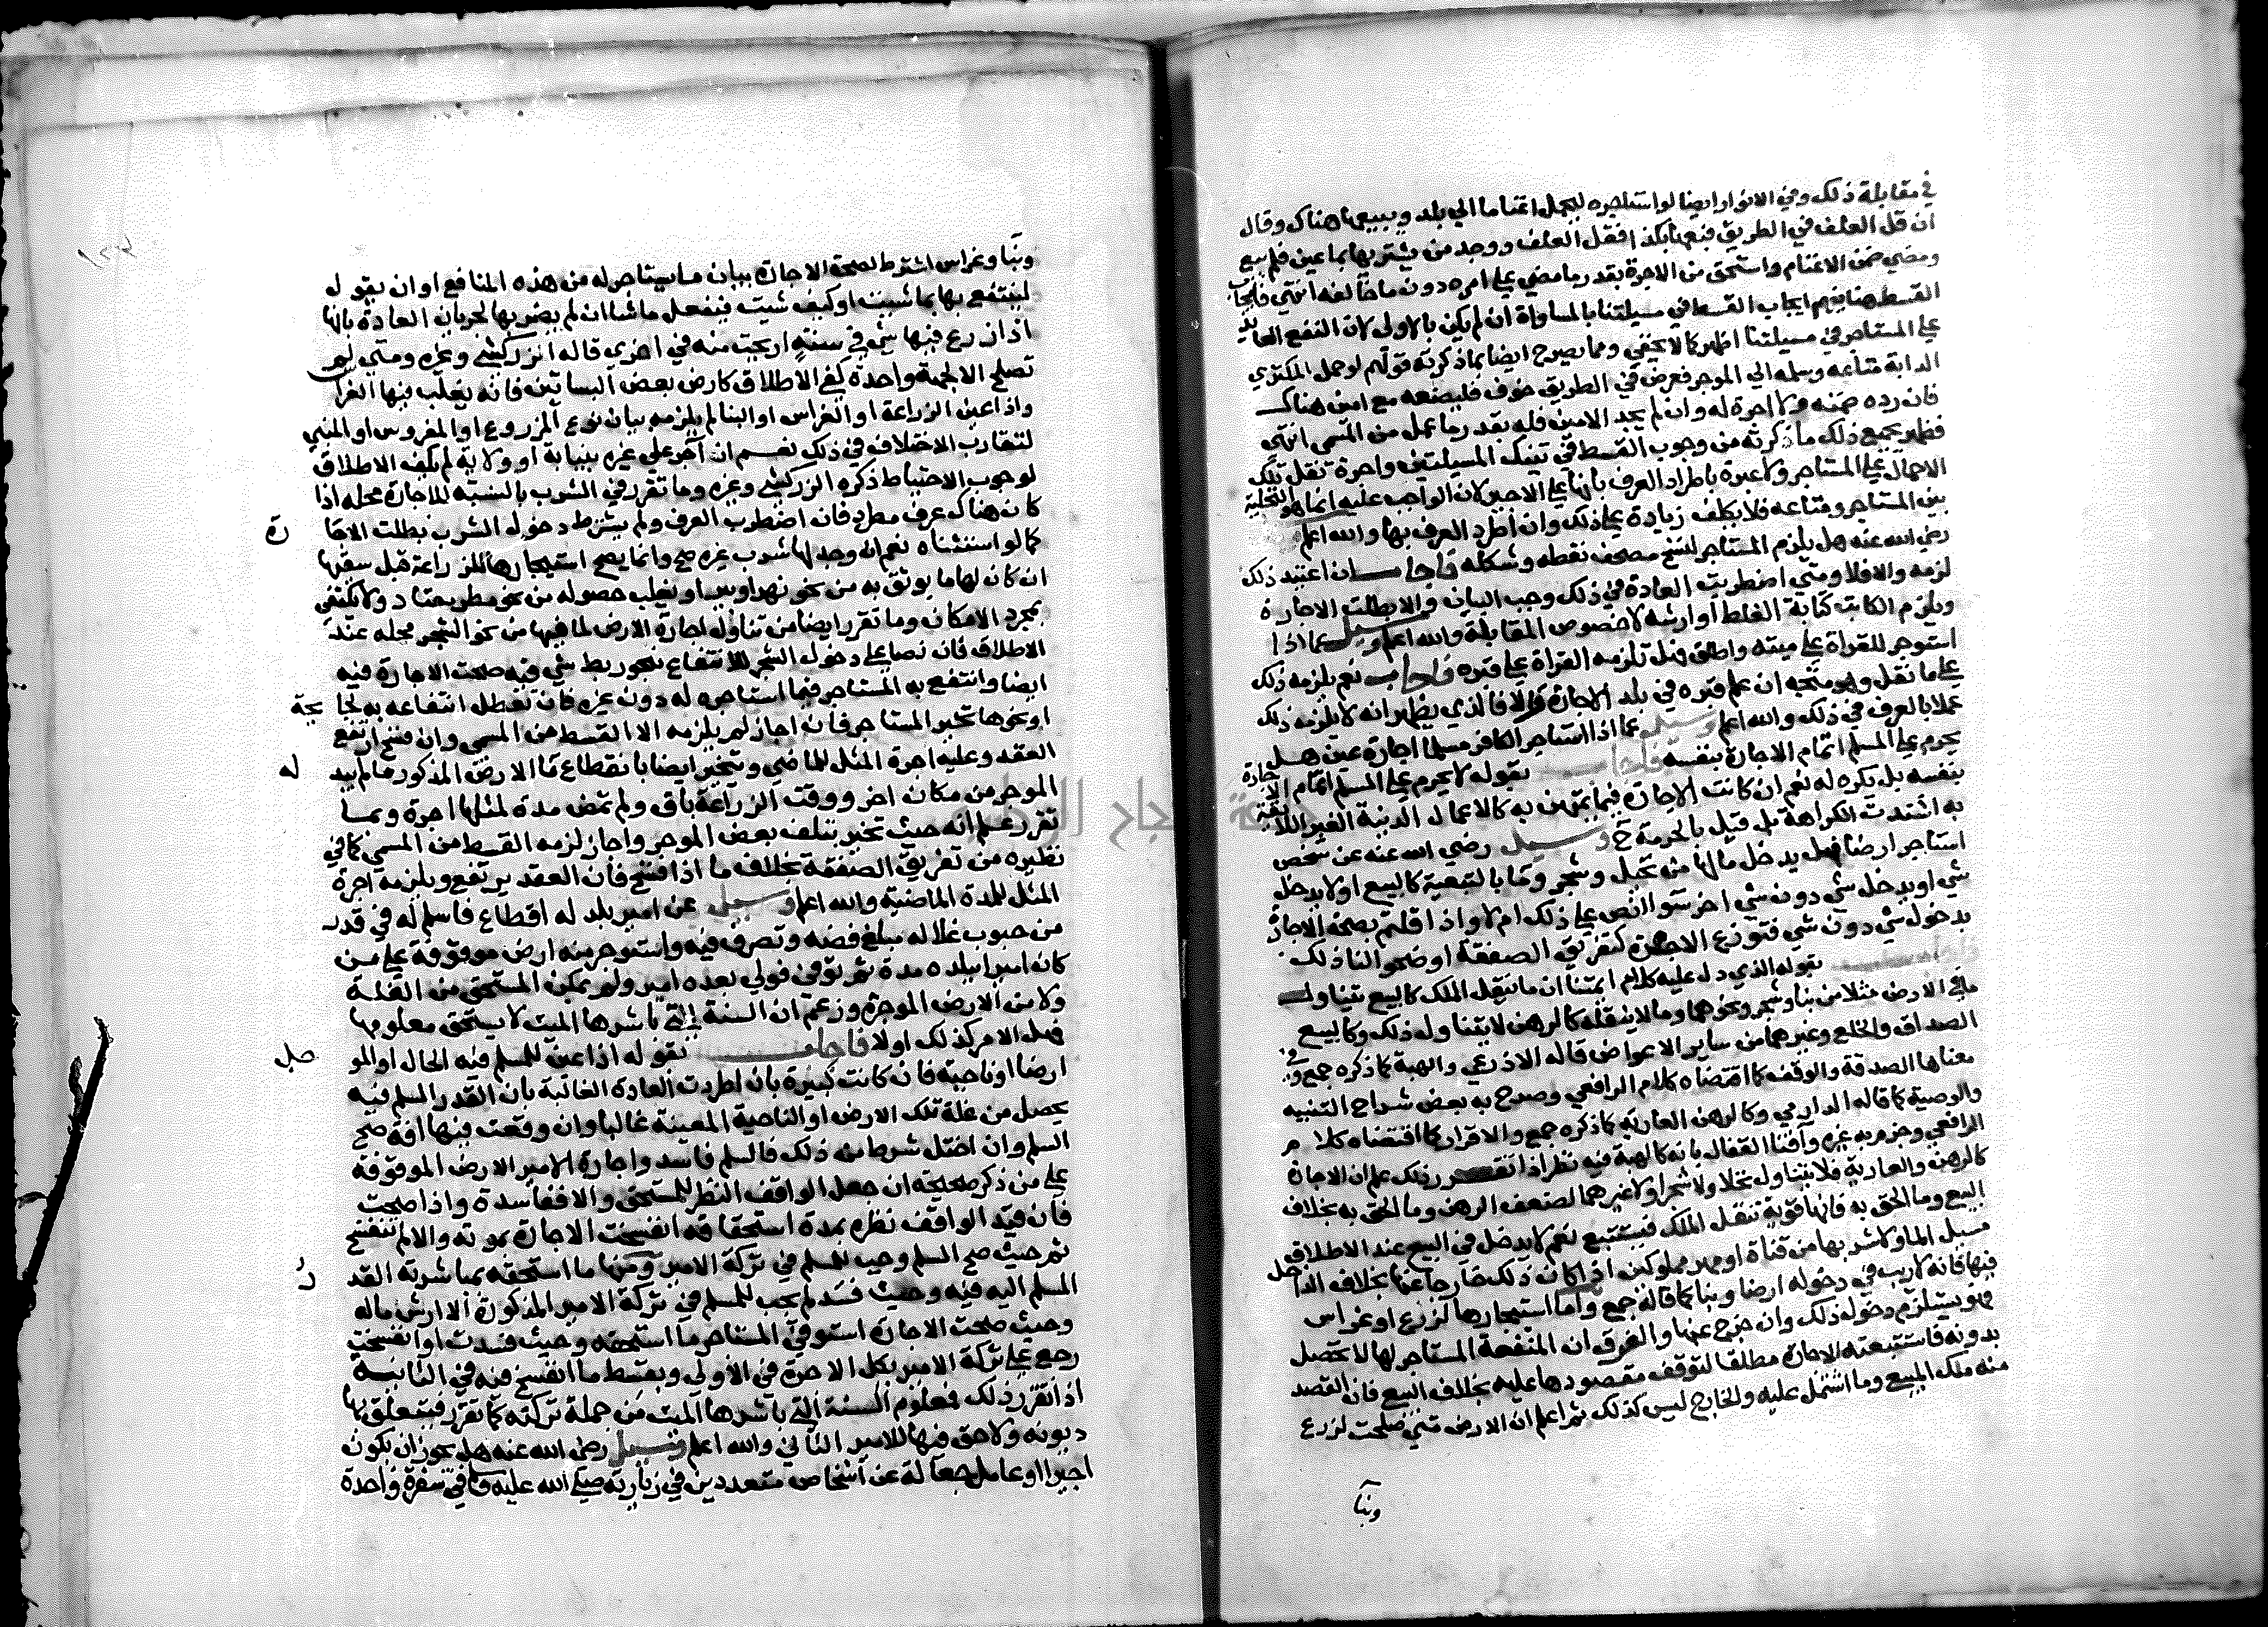 في مقابلة ذلك وفي الانوار ايضا لو استاجره ليحمل اغناما الي بلد ويبيعها هناك وقال
ان قل العلف في الطريق فبعها بكذا فقل العلف ووجد من يشتريها بما عين فلم يبع
ومضي ضمن الاغنام واستحق من الاجرة بقدر ما مضي علي امره دون ما خالفه انتهي فايجاب
القسط هنا يفهم ايجاب القسط في مسيلتنا بالمساواة ان لم يكن بالاولي لان النفع العايد
علي المستاجر في مسيلتنا اظهر كما لا يخفي ومما يصرح ايضا بما ذكرته قولهم لو حمل المكتري
الدابة متاعه وسلمه الي الموجر فعرض في الطريق خوف فليضعه مع امين هناك
فان رده ضمنه ولا اجرة له وان لم يجد الامين فله بقدر ما عمل من المسمي انتهي
فظهر بجميع ذلك ما ذكرته من وجوب القسط في تينك المسيلتين واجرة نقل تلك
الاحمال علي المستاجر ولا عبرة باطراد العرف بانها علي الاجير لان الواجب عليه انما هو التخلية
بين المستاجر ومتاعه فلا يكلف زيادة علي ذلك وان اطرد العرف بها والله اعلم
رضي الله عنه هل يلزم المستاجر لنسخ مصحف نقطه وشكله فاجاب ان اعتيد ذلك
لزمه والا فلا ومتي اضطربت العادة في ذلك وجب البيان والا بطلت الاجارة
ويلزم الكاتب كتابة الغلط او ارشه لا خصوص المقابلة والله اعلم وسيل عما اذا
استوجر للقراة علي ميته واطلق هل تلزمه القراة علي قبره فاجاب نعم يلزمه ذلك
علي ما نقل وهو متجه ان علم قبره في بلد الاجارة والا فالذي يظهر انه لا يلزمه ذلك
عملا بالعرف في ذلك والله اعلم وسيل عما اذا استاجر الكافر مسلما اجارة عين هل
يحرم علي المسلم اتمام الاجارة بنفسه فاجاب بقوله لا يحرم علي المسلم اتمام الاجارة
بنفسه بل يكره له نعم ان كانت الاجارة فيما يمتهن به كالاعمال الدنية الغير اللايقة
به اشتدت الكراهة بل قيل بالحرمة ح وسيل رضي الله عنه عن شخص
استاجر ارضا فهل يدخل ما لها من نخيل وشجر وما بالتبعية كالبيع او لا يدخل
شي او يدخل شي دون شي اخر سوا النص علي ذلك ام لا واذا قلتم بصحة الاجارة
بدخول شي دون شي فتوزع الاجرة كتفريق الصفقة اوضحوا لنا ذلك
فاجاب بقوله الذي دل عليه كلام ايمتنا ان ما ينقل الملك كالبيع يتناول
ما في الارض مثلا من بنا وشجر ونحوهما وما لا ينقله كالرهن لا يتناول ذلك وكالبيع
الصداق والخلع وغيرهما من ساير الاعواض قاله الاذرعي والهبة كما ذكره جمع وفي
معناها الصدقة والوقف كما اقتضاه كلام الرافعي وصرح به بعض شراح التنبيه
والوصية كما قاله الدارمي وكالرهن العارية كما ذكره جمع والاقرار كما اقتضاه كلام
الرافعي وجزم به غيره وافتا القفال بانه كالهبة فيه نظر اذا تقرر ذلك علم ان الاجارة
كالرهن والعارية فلا يتناول نخلا ولا شجرا ولا غيرهما لضعف الرهن وما الحق به بخلاف
البيع وما الحق به فانها قوية تنقل الملك فيستتبع نعم لا يدخل في البيع عند الاطلاق
مسيل الما ولا شربها من قناة او نهر مملوكين اذا كان ذلك خارجا عنها بخلاف الداخل
فيها فانه لا ريب في دخوله ارضا وبنا كما قاله جمع واما استيجارها لزرع او غراس
فهو يستلزم دخول ذلك وان خرج عنها والفرق ان المنفعة المستاجر لها لا تحصل
بدونه فاستتبعته الاجارة مطلقا لتوقف مقصودها عليه بخلاف البيع فان القصد
منه ملك المبيع وما اشتمل عليه والخارج ليس كذلك ثم اعلم ان الارض متي صلحت لزرع
وبنا
وبنا وغراس اشترط لصحة الاجارة بيان ما يستاجر له من هذه المنافع او ان يقول له
لينتفع بها بما شيت او كيف شيت فيفعل ما شا ان لم يضر بها لجريان العادة بانها
اذا زرع فيها شي في سنة اريحت منه في اخري قاله الزركشي وغيره ومتي لم
تصلح الا لجهة واحدة كفي الاطلاق كارض بعض البساتين فانه يغلب فيها الغراس
واذا عين الزراعة او الغراس او البنا لم يلزمه بيان نوع المزروع او المغروس او المبني
لتقارب الاختلاف في ذلك نعم ان آجر علي غيره بنيابة او ولاية لم يكف الاطلاق
لوجوب الاحتياط ذكره الزركشي وغيره وما تقرر في الشرب بالنسبة للاجارة محله اذا
كان هناك عرف مطرد فان اضطرب العرف ولم يشترط دخول الشرب بطلت الاجارة
كما لو استثناه نعم ان وجد لها شرب غيره صح وانما يصح استيجارها للزراعة قبل سقيها
ان كان لها ما يوثق به من نحو نهر او بير او يغلب حصوله من نحو مطر معتاد ولا يكفي
مجرد الامكان وما تقرر ايضا من تناول اجارة الارض لما فيها من نحو الشجر محله عند
الاطلاق فان نصا علي دخول الشجر للانتفاع بنحو ربط شي فيه صحت الاجارة فيه
ايضا وانتفع به المستاجر فيما استاجره له دون غيره فان تعطل انتفاعه به لجايحة
او نحوها تخير المستاجر فان اجاز لم يلزمه الا القسط من المسمي وان فسخ ارتفع
العقد وعليه اجرة المثل للماضي ويتخير ايضا بانقطاع ما الارض المذكور ما لم يبدله
الموجر من مكان اخر ووقت الزراعة باق ولم تمض مدة لمثلها اجرة ومما
تقرر علم انه حيث تخير بتلف بعض الموجر واجاز لزمه القسط من المسمي كما في
نظيره من تفريق الصفقة بخلاف ما اذا فسخ فان العقد يرتفع ويلزمه اجرة
المثل للمدة الماضية والله اعلم وسيل عن امير بلد له اقطاع فاسلم له في قدر
من حبوب غلاله مبلغ فضه وتصرف فيه واستوجر منه ارض موقوفة علي من
كان اميرا ببلده مدة ثم توفي فولي بعده امير ولم يمكن المستحق من الغلة
ولا من الارض الموجرة وزعم ان السنة التي باشرها الميت لا يستحق معلومها
فهل الامر كذلك اولا فاجاب بقوله اذا عين للمسلم فيه الحال او الموجل
ارضا او ناحية فان كانت كبيرة بان اطردت العادة الغالبة بان القدر المسلم فيه
يحصل من غلة تلك الارض او الناحية المعينة غالبا وان وقعت فيها افة صح
السلم وان اختل شرط من ذلك فالسلم فاسد واجارة الامير الارض الموقوفة
علي من ذكر صحيحة ان جعل الواقف النظر للمستحق والا ففاسدة واذا صحت
فان قيد الواقف نظره بمدة استحقاقه انفسخت الاجارة بموته والا لم تنفسخ
ثم حيث صح السلم وجب للمسلم في تركة الامير ومنها ما استحقه بمباشرته القدر
المسلم اليه فيه وحيث فسد لم يجب للمسلم في تركة الامير المذكورة الا ارش ماله
وحيث صحت الاجارة استوفي المستاجر ما استحقه وحيث فسدت او انفسخت
رجع علي تركة الامير بكل الاجرة في الاولي وبقسط ما انفسخ فيه في الثانية
اذا تقرر ذلك فمعلوم السنة التي باشرها الميت من جملة تركته كما تقرر فيتعلق بها
ديونه ولا حق فيها للامير الثاني والله اعلم وسيل رضي الله عنه هل يجوز ان يكون
اجيرا او عامل جعالة عن اشخاص متعددين في زيارته صلي الله عليه وسلم في سفرة واحدة